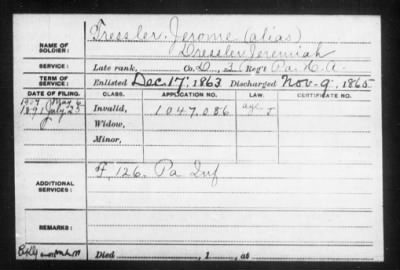 Tressler, Jerome (alias)
NAME OF SOLDIER: Dressler, Jeremiah
SERVICE: Late rank, Co. D, 3 Reg't Pa. H. A.
TERM OF SERVICE: Enlisted Dec. 17, 1863 Discharged Nov. 9, 1865
DATE OF FILING. CLASS. APPLICATION NO. LAW. CERTIFICATE NO.
1907 May
1891 July 25 Invalid, 1047.086
Widow,
Minor,
ADDITIONAL SERVICES: F, 126. Pa Inf
REMARKS:
Died , 1 , at